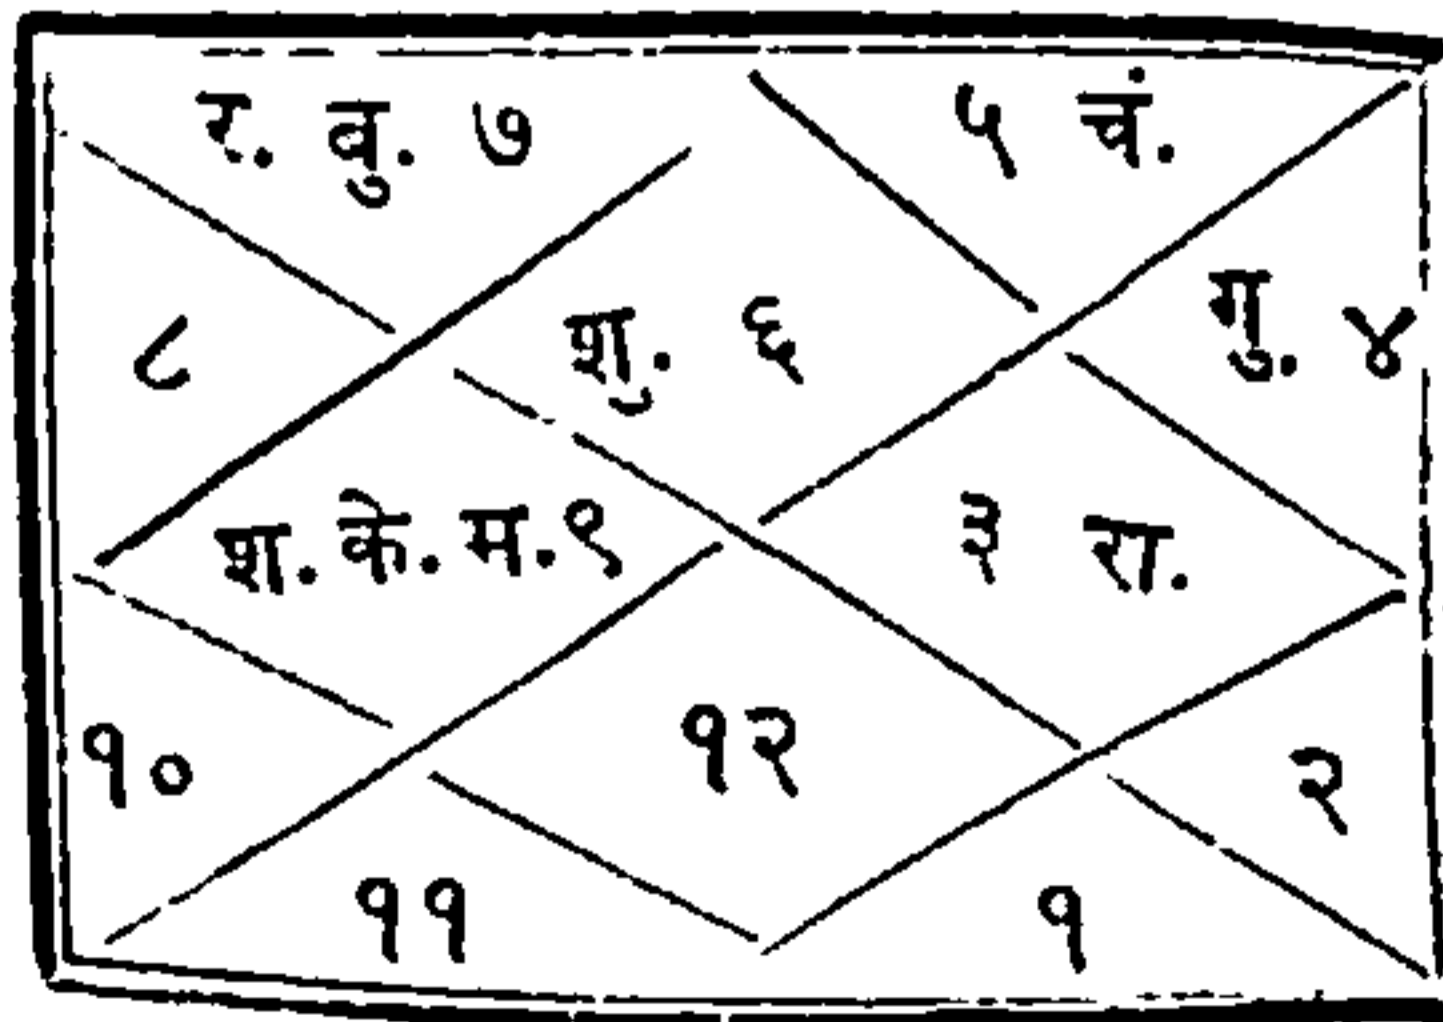 र. बु. ७
५ चं.
८
शु. ६
गु. ४
श. के. म. ९
३ रा.
१०
१२
२
११
१